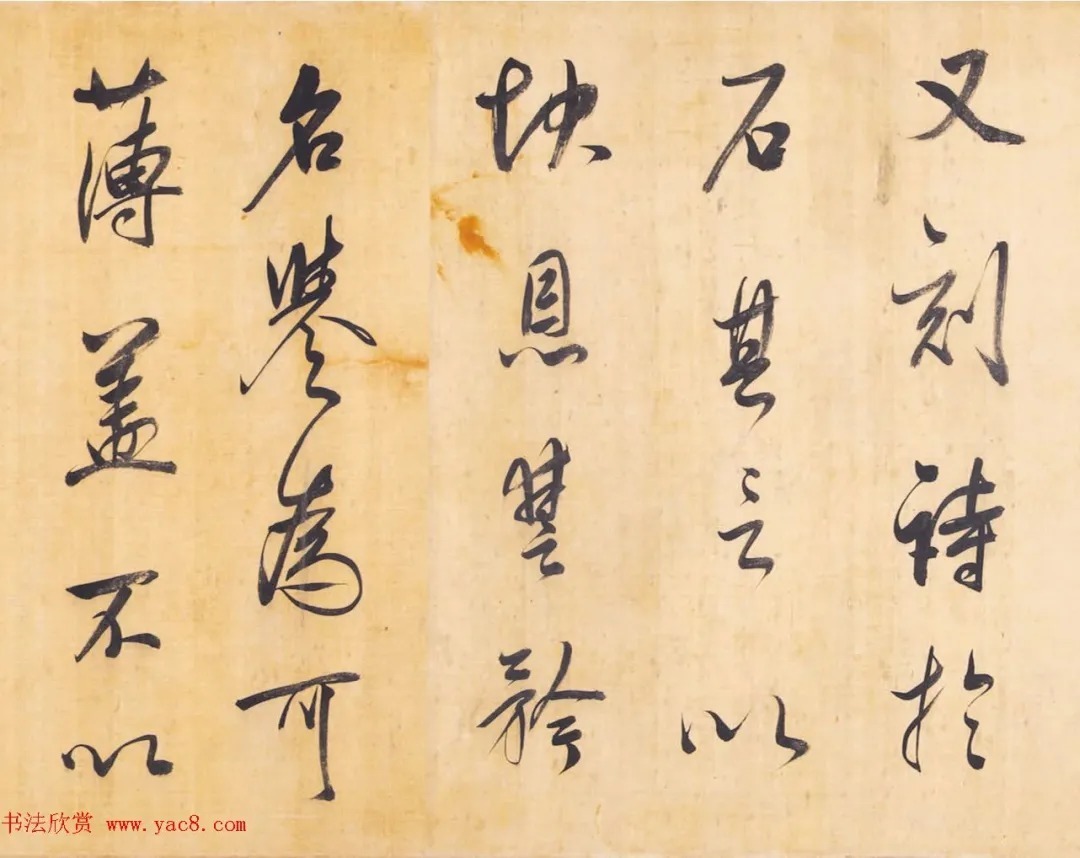 又刻詩於
石其言以
快恩讐矜
名譽為可
薄蓋不以
书法欣赏 www.yac8.com